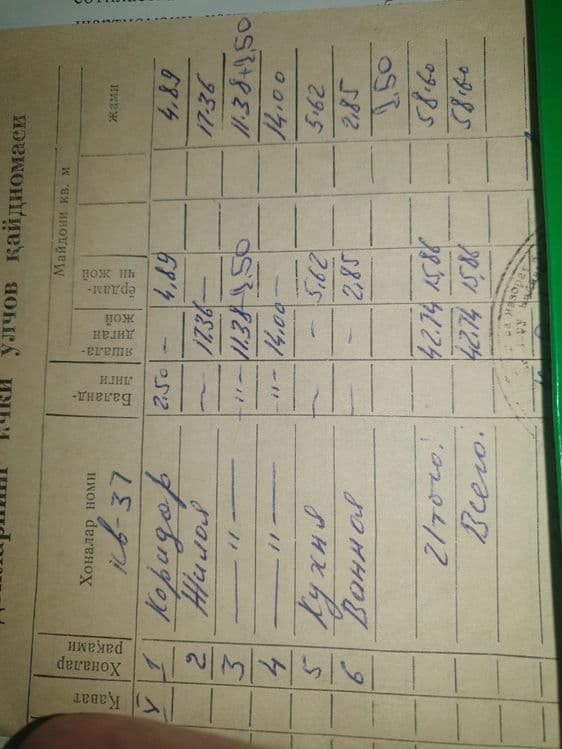 ички улчов қайдномаси
Қават | Хоналар рақами | Хоналар номи | Баланд-лиги | Майдони кв. м
яшала-диган жой | ёрдам-чи жой | жами
кв-37
V | 1 | Коридор | 2.50 | – | 4.89 | 4.89
2 | Жилая | – | 17.36 | – | 17.36
3 | — " — | – " – | 11.38 | 2,50 | 11.38+2,50
4 | — " — | – " – | 14.00 | – | 14.00
5 | Кухня | – | – | 5.62 | 5.62
6 | Ванная | – | – | 2.85 | 2.85
2,50
Итого: | 42.74 | 15,86 | 58.60
Всего: | 42.74 | 15,86 | 58.60